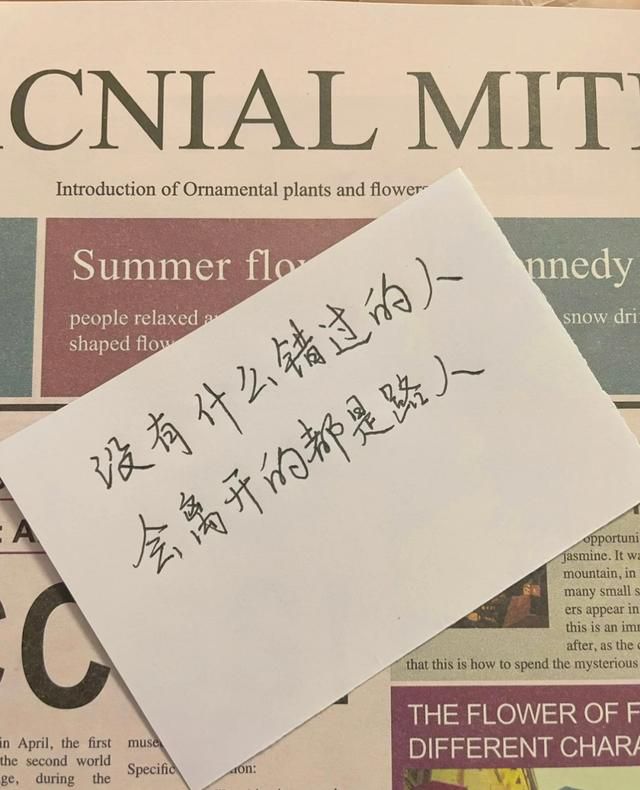 CNIAL MIT
Introduction of Ornamental plants and flowers
Summer flo
people relaxed
shaped flow
nnedy
snow dri
没有什么错过的人
会离开的都是路人
opportuni
jasmine. It wa
mountain, in
many small s
ers appear in
this is an im
after, as the
that this is how to spend the mysterious
THE FLOWER OF F
DIFFERENT CHARA
in April, the first
the second world
ge, during the
muse
Specific
on: